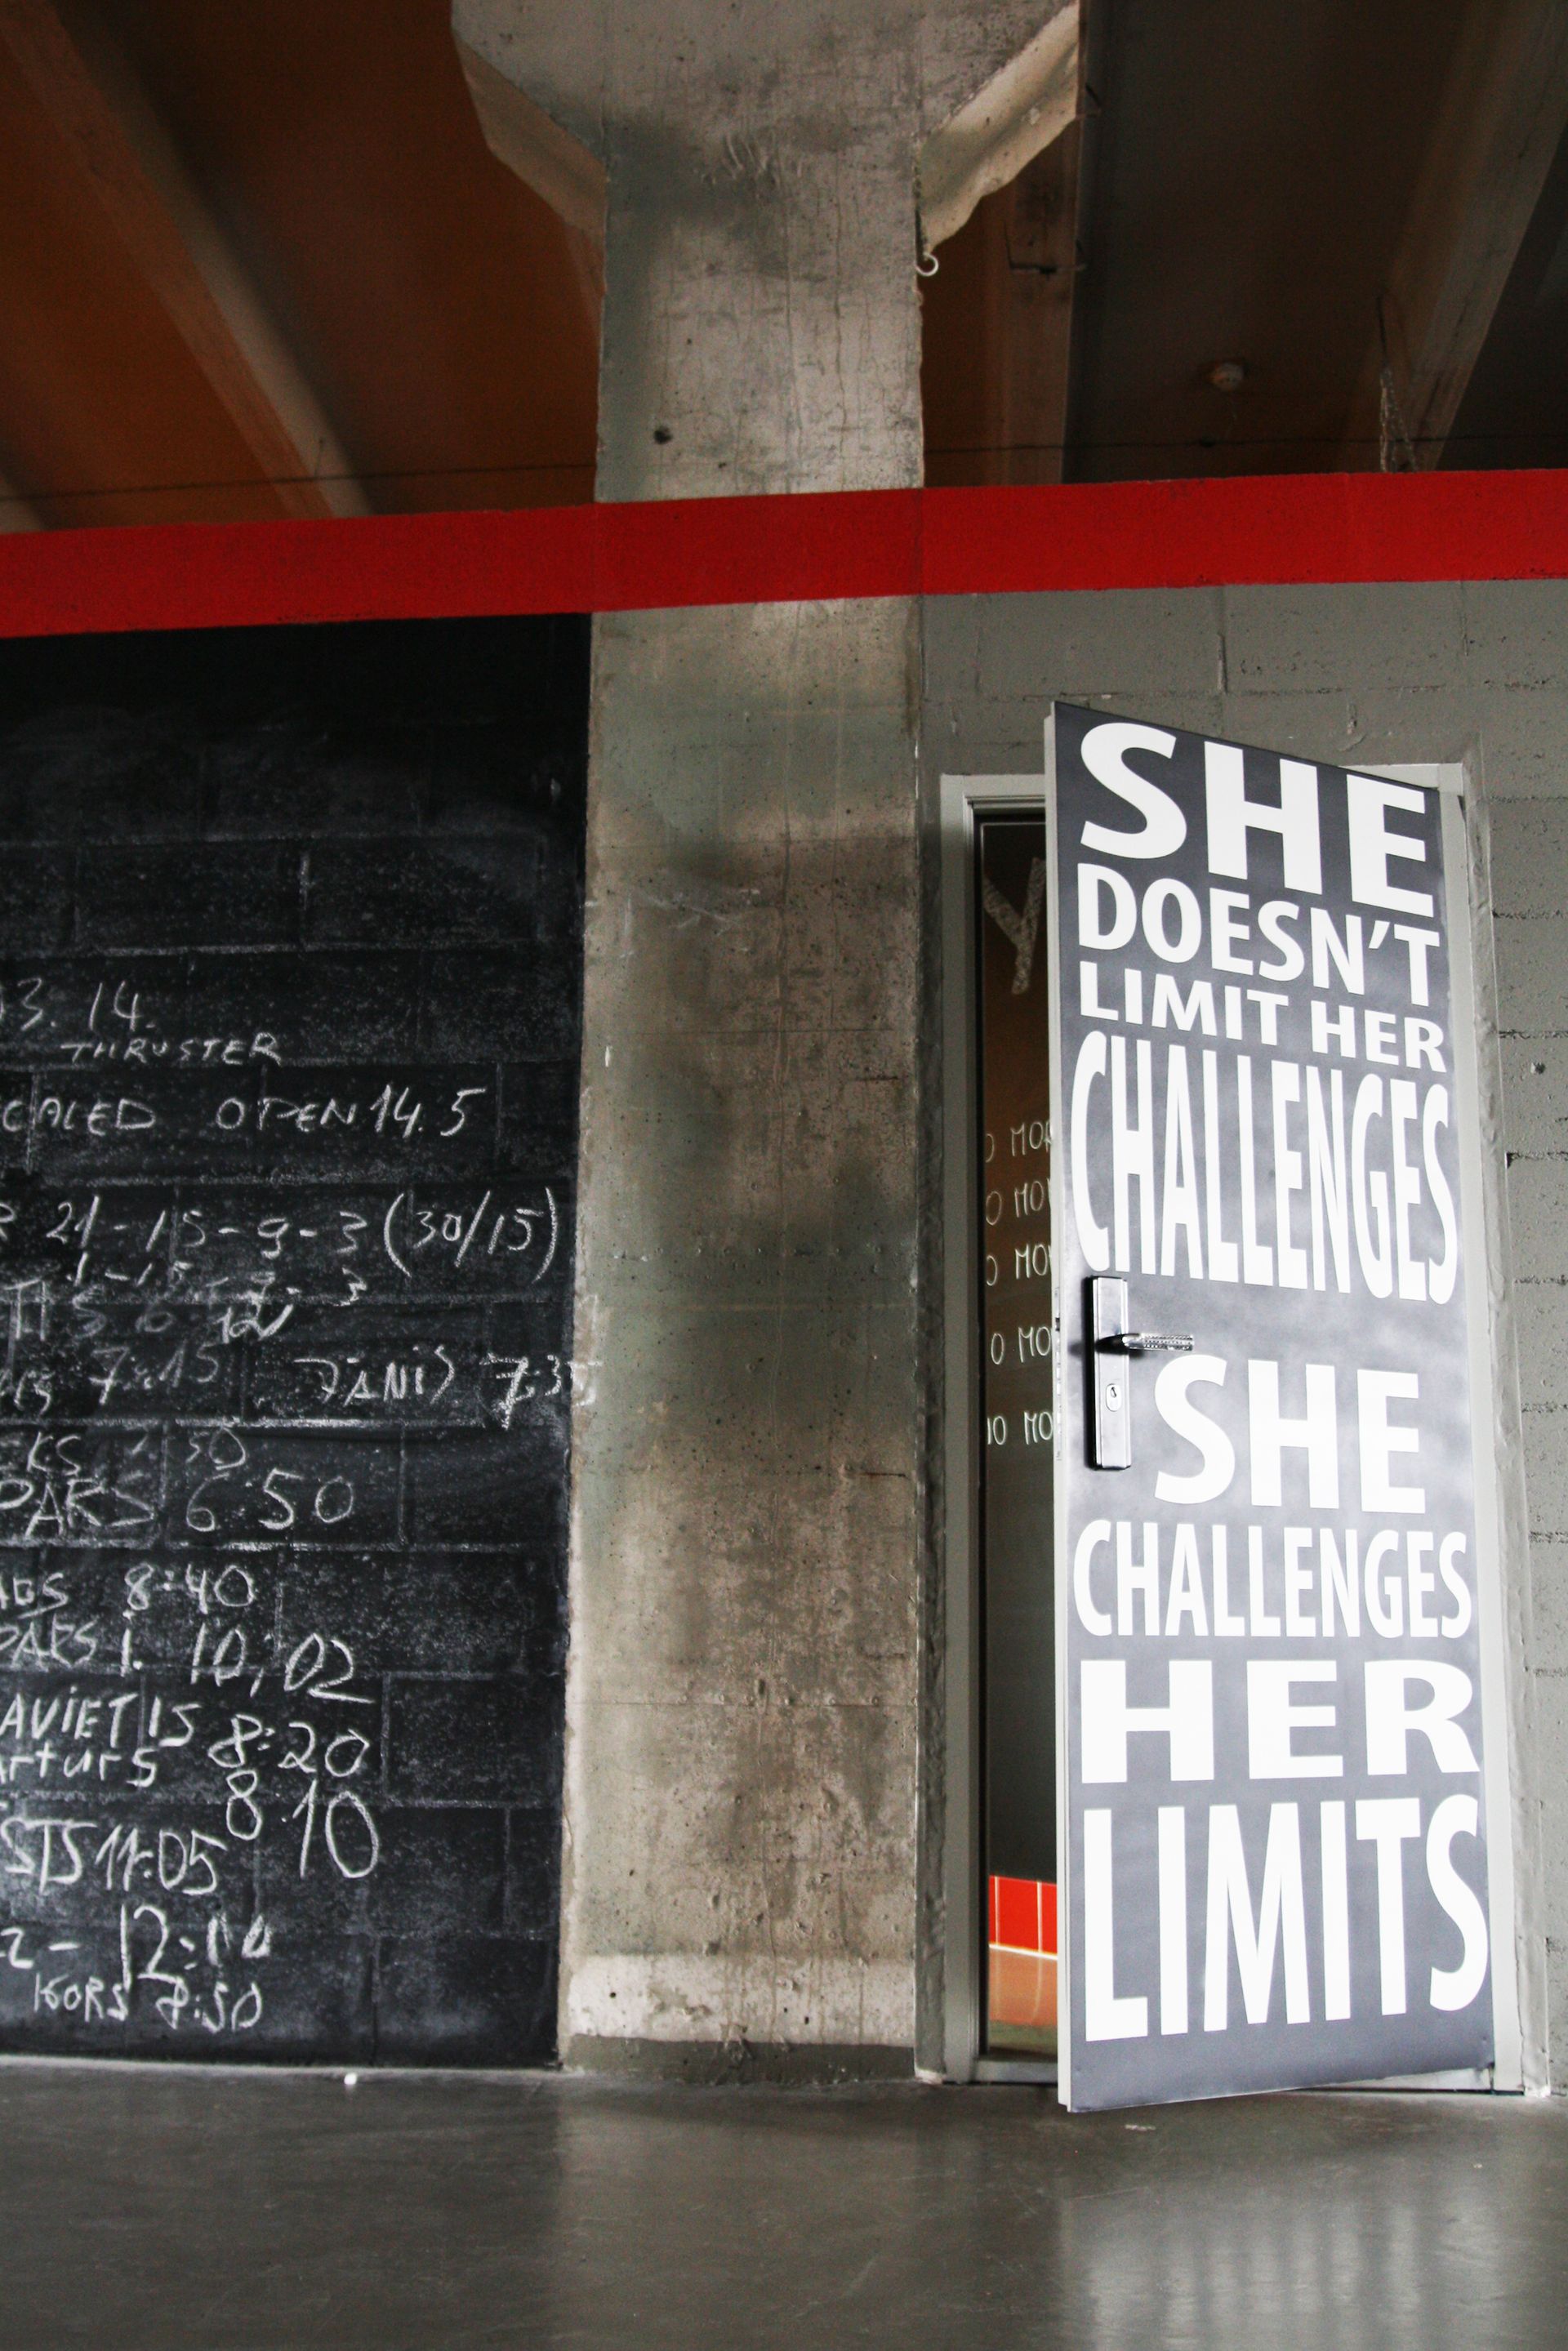 3. 14.
THRUSTER
CALED OPEN 14.5
21-15-9-3 (30/15)
7:15 JĀNIS 7:35
KS 7:50
PARS 6:50
8:40
1. 10,02
AVIETIS 8:20
Arturs 8:10
STS 11:05
IGORS 8:50
Y
O MOR
O MO
O MO
O MO
IO MO
SHE
DOESN'T
LIMIT HER
CHALLENGES
SHE
CHALLENGES
HER
LIMITS